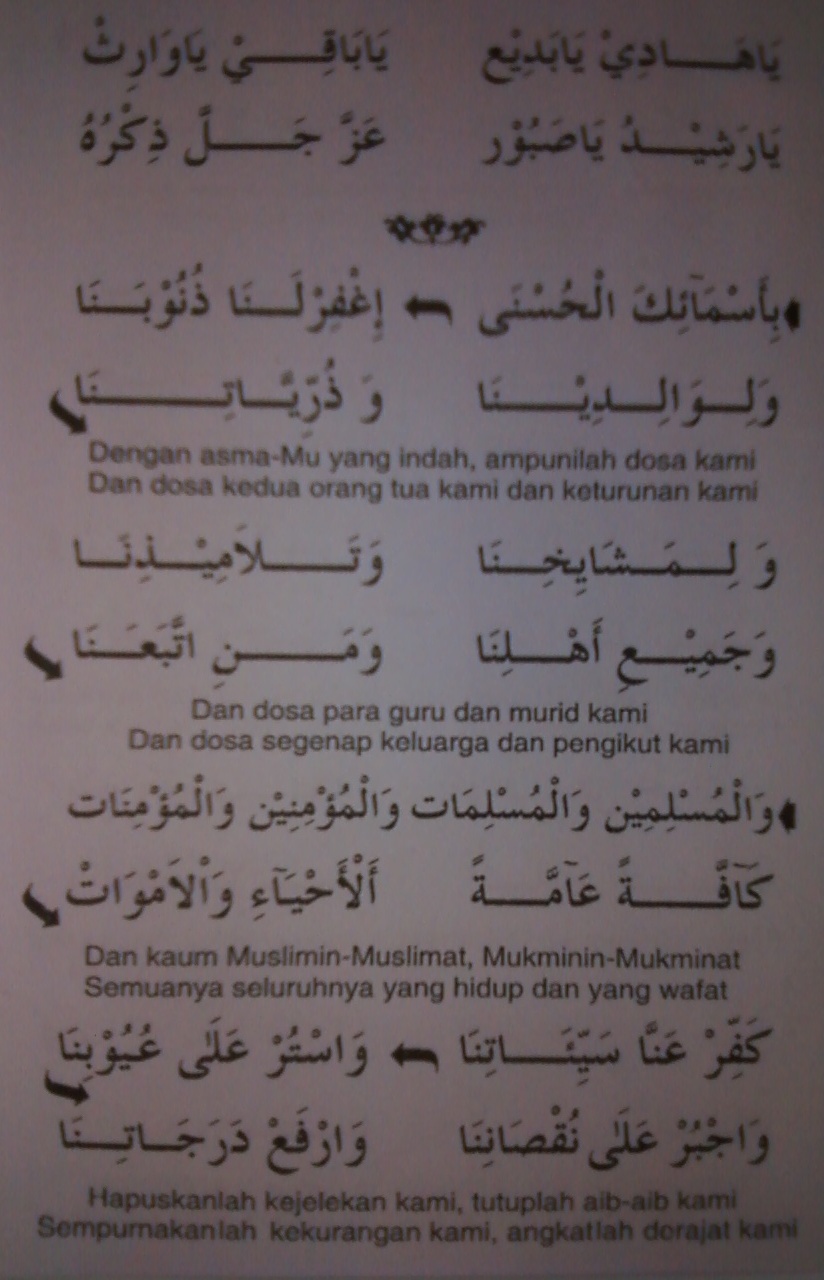 يَاهَـــادِيْ يَابَدِيْع يَابَاقِـــيْ يَاوَارِثْ
يَارَشِيْـــدُ يَاصَبُوْر عَزَّ جَـــلَّ ذِكْرُهُ
بِأَسْمَآئِكَ الْحُسْنَى إِغْفِرْ لَـــنَا ذُنُوْبَـــنَا
وَلِـــوَالِـــدِيْـــنَا وَ ذُرِّيَّـــاتِـــنَا
Dengan asma-Mu yang indah, ampunilah dosa kami
Dan dosa kedua orang tua kami dan keturunan kami
وَ لِـــمَـــشَايِخِـــنَا وَتَـــلاَمِيْـــذِنَـــا
وَجَمِيْـــعِ أَهْـــلِنَا وَمَـــنِ اتَّبَعَـــنَا
Dan dosa para guru dan murid kami
Dan dosa segenap keluarga dan pengikut kami
وَالْمُسْلِمِيْن وَالْمُسْلِمَات وَالْمُؤْمِنِيْن وَالْمُؤْمِنَات
كَآفَّـــةً عَآمَّـــةً أَلْأَحْيَآءِ وَالْاَمْوَاتْ
Dan kaum Muslimin-Muslimat, Mukminin-Mukminat
Semuanya seluruhnya yang hidup dan yang wafat
كَفِّرْ عَنَّا سَيِّئَـــاتِنَا وَاسْتُرْ عَلَى عُيُوْبِنَا
وَاجْبُرْ عَلَى نُقْصَانِنَا وَارْفَعْ دَرَجَـــاتِـــنَا
Hapuskanlah kejelekan kami, tutuplah aib-aib kami
Sempurnakanlah kekurangan kami, angkatlah derajat kami